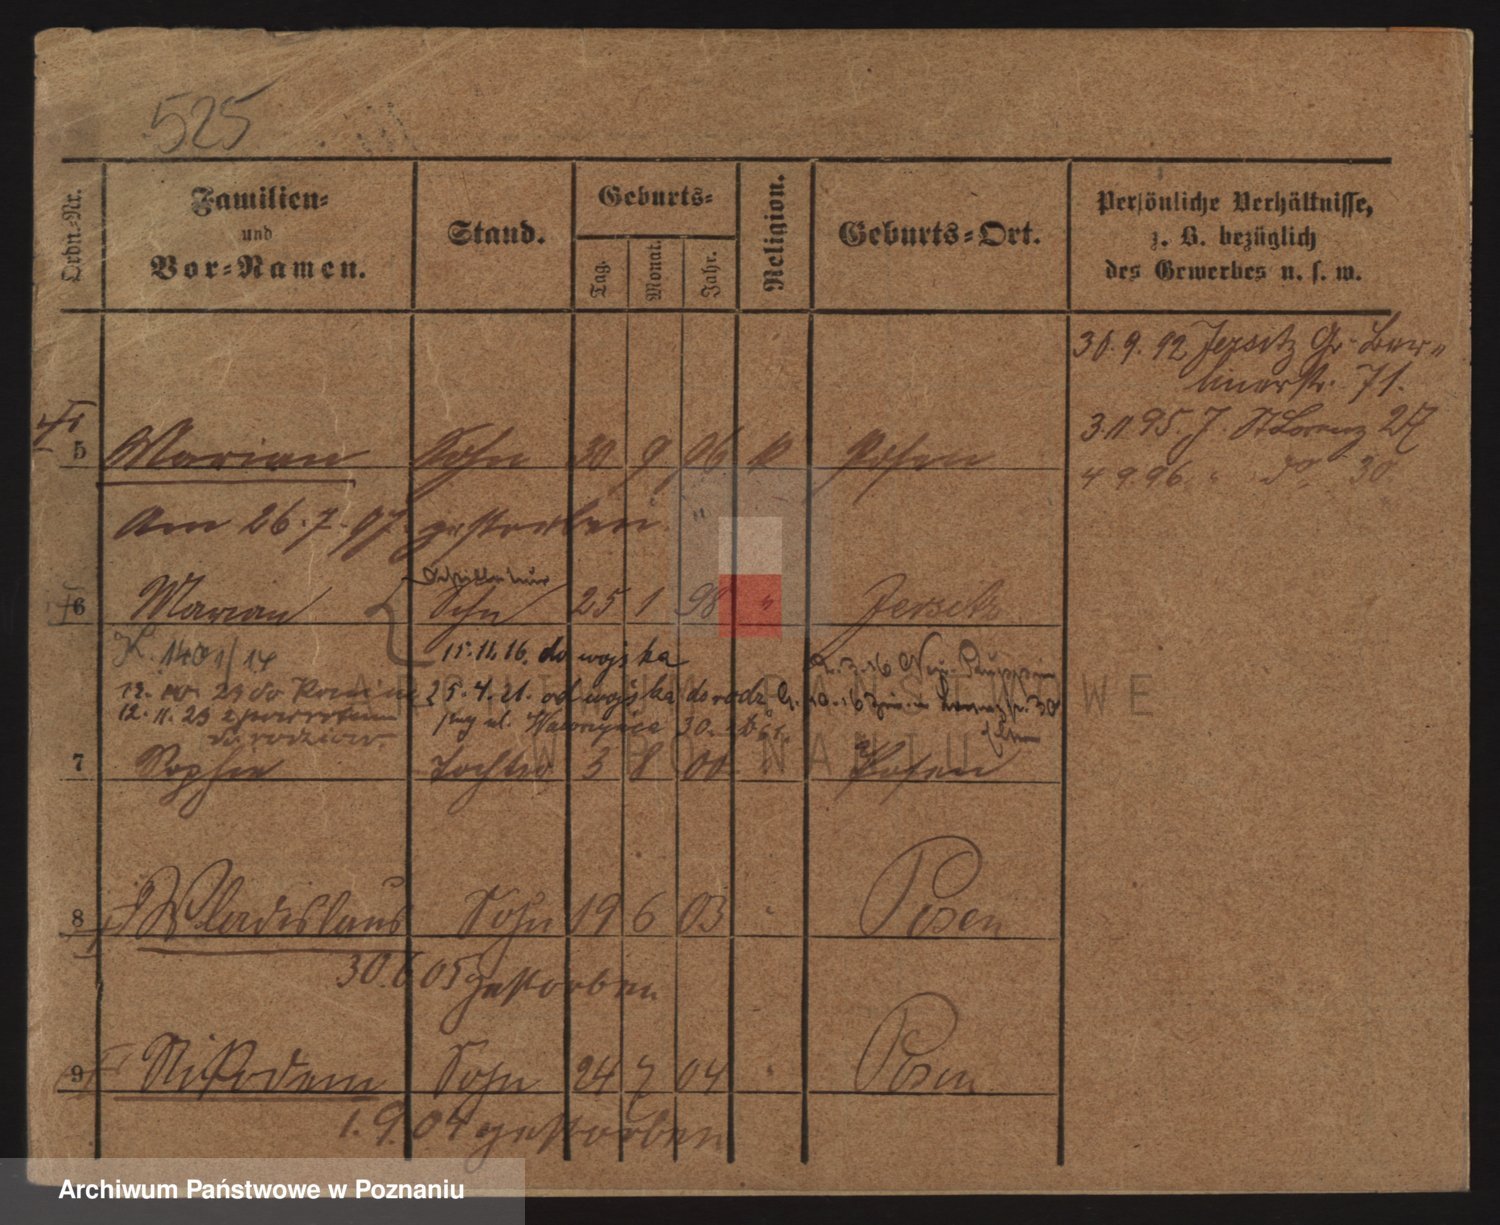 525
Ordn.-Nr.
Familien-
und
Vor-Namen.
Stand.
Geburts-
Tag.
Monat.
Jahr.
Religion.
Geburts-Ort.
Persönliche Verhältnisse,
z. B. bezüglich
des Gewerbes u. s. w.
30.9.92 Jersitz Gr. Ber-
linerstr. 71.
3.11 95. J. St Lorenz 27
4 9 96. " do 30.
5 Marian Sohn 30 9 96 k Posen
Am 26.7.97. gestorben
6 Marian Sohn 25 1 98 " Jersitz
K. 1401/14
15.11.16. do wojska
12. 10. 23 do
25.4.21. od wojska do rodz.
12. 11. 23 z powrotem
do rodziców.
7 Sophie Tochter 3 8 00 Posen
8 Wladislaus Sohn 19 6 03 " Posen
30.6 05 gestorben
9 Nikodem Sohn 24 7 04 " Posen
1.9.04 gestorben
ARCHIWUM PAŃSTWOWE
W POZNANIU
Archiwum Państwowe w Poznaniu